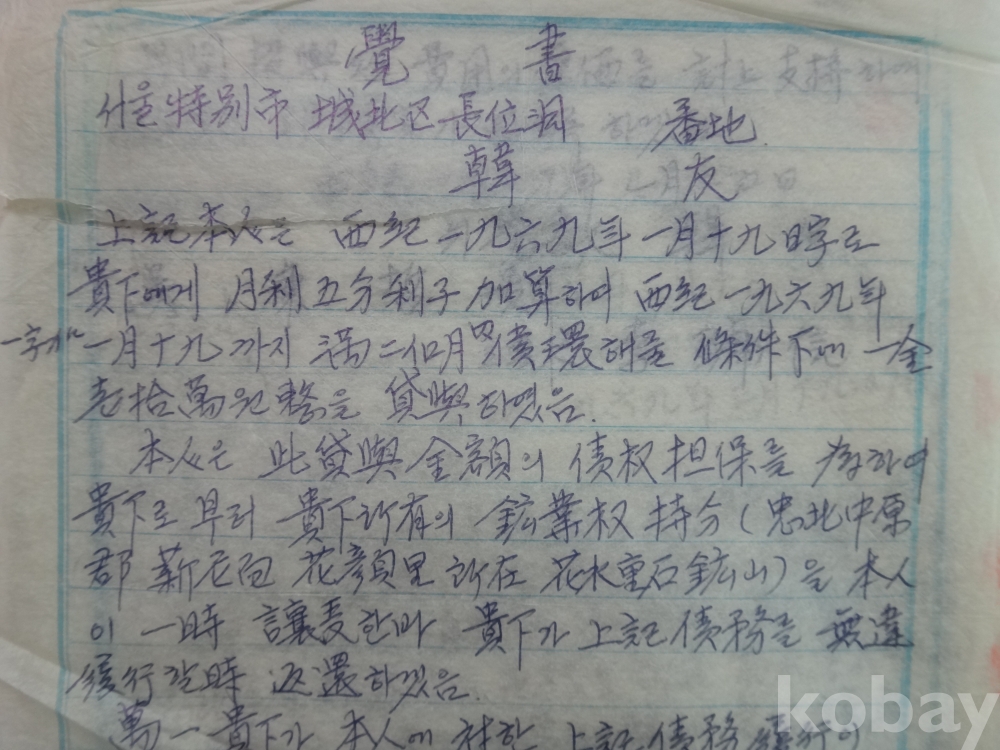 覺 書
서울特別市 城北区 長位洞 番地.
韓 友
上記本人은 西紀 一九六九年 一月十九日字로
貴下에게 月利五分利子加算하여 西紀 一九六九年
一月十九 까지 満二個月 債還해줄 條件下에 一金
壱拾萬원整을 貸與하였음.
本人은 此貸與金額의 債权担保를 為하여
貴下로 부터 貴下所有의 鉱業权持分(忠北中原
郡 薪尼面 花顔里 所在 花水重石鉱山)을 本人
이 一時 讓受한바 貴下가 上記債務를 無違
履行할時 返還하겠음.
萬一貴下가 本人에 対한 上記債務履行이
kobay